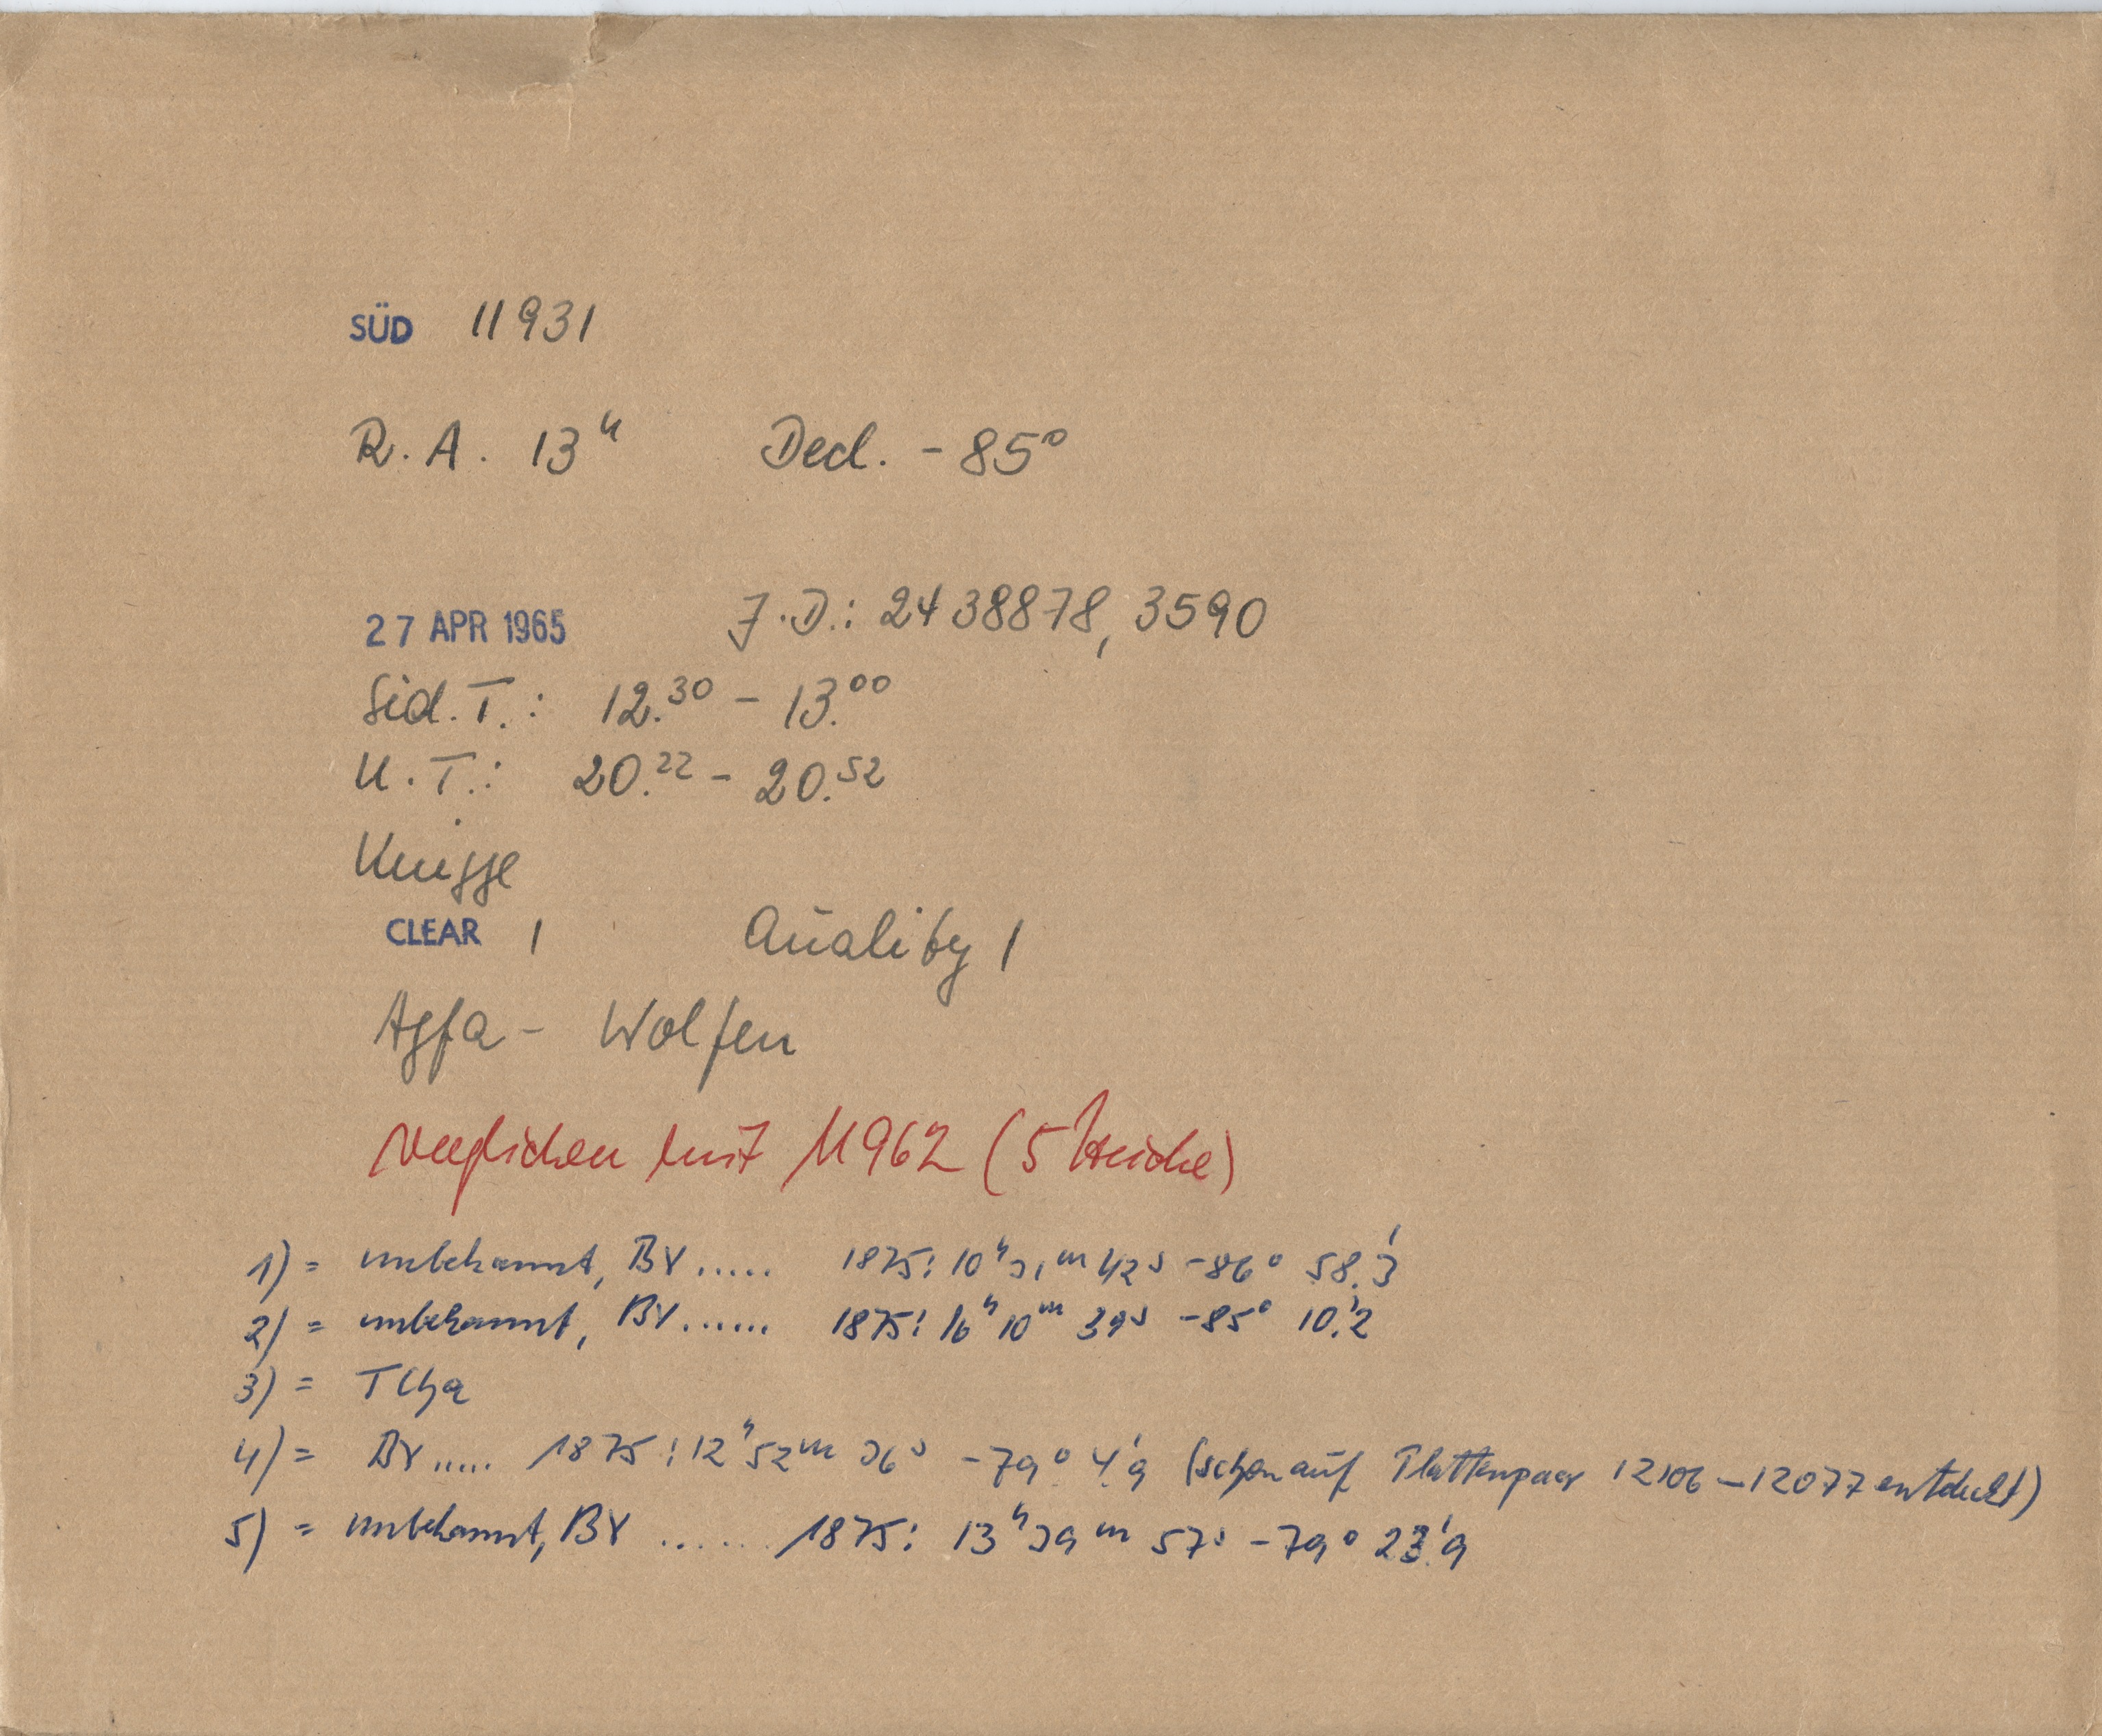 SÜD 11931
R. A. 13ʰ Decl. - 85°
27 APR 1965 J.D.: 2438878,3590
Sid. T.: 12.³⁰ - 13.⁰⁰
U. T.: 20.²² - 20.⁵²
Knigge
CLEAR 1 Quality 1
Agfa - Wolfen
verglichen mit 11962 (5 Striche)
1) = unbekannt, BV ..... 1875: 10ʰ 31ᵐ 42ˢ -86° 58.'3
2) = unbekannt, BV ...... 1875: 16ʰ 10ᵐ 39ˢ -85° 10.'2
3) = T Cha
4) = BV ..... 1875: 12ʰ 52ᵐ 36ˢ -79° 4.'9 (schon auf Plattenpaar 12106 - 12077 entdeckt)
5) = unbekannt, BV ...... 1875: 13ʰ 39ᵐ 57ˢ -79° 23.'9